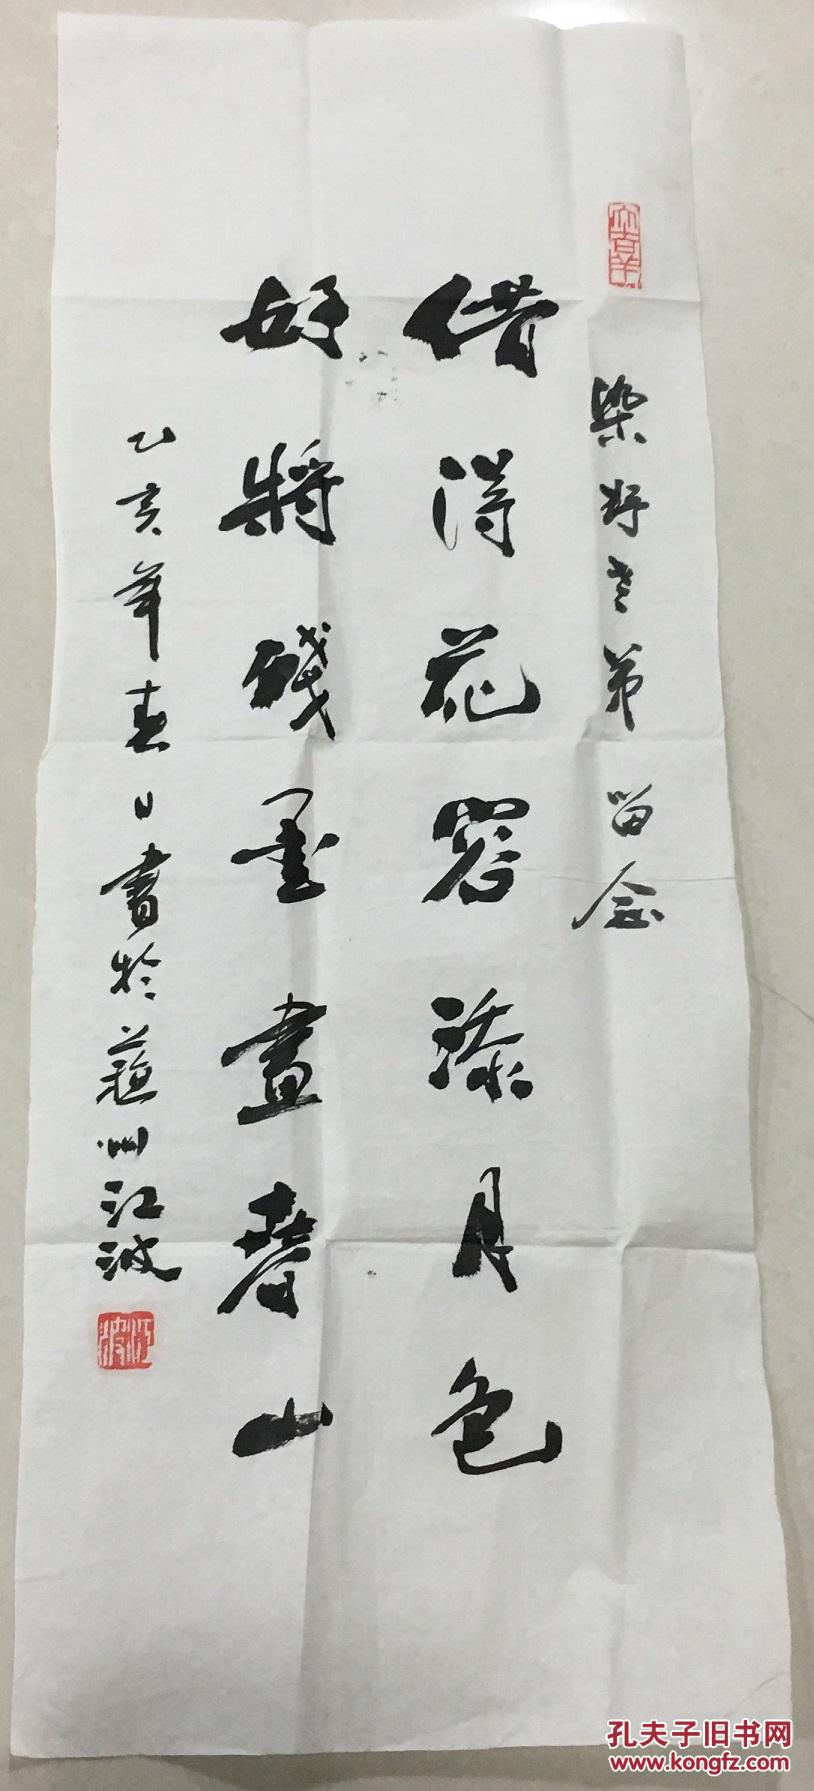 染好老弟 留念
借得花容添月色
好将残墨画春山
乙亥年春日書於蘇州江波
江波
孔夫子旧书网
www.kongfz.com